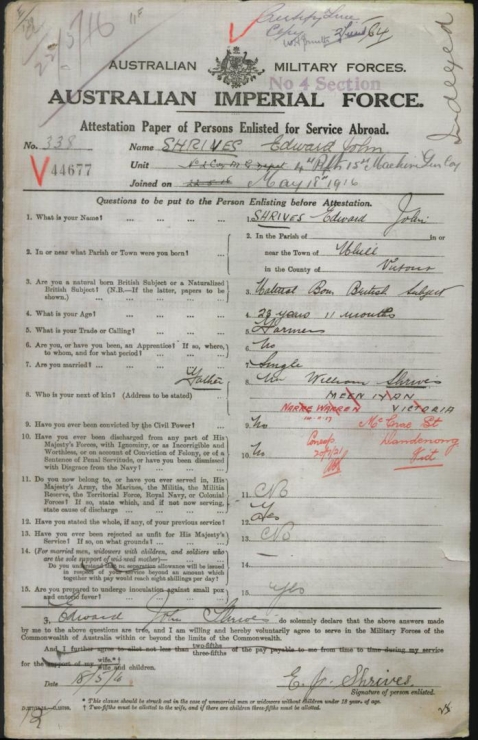 Certified True
Copy
5/16
64
Indexed
AUSTRALIAN MILITARY FORCES.
No 4 Section
AUSTRALIAN IMPERIAL FORCE.
Attestation Paper of Persons Enlisted for Service Abroad.
No. 338 Name SHRIVES Edward John
44677
Unit 4th Rfts 15th Machine Gun Coy
Joined on May 18th 1916
Questions to be put to the Person Enlisting before Attestation.
1. What is your Name? 1. SHRIVES Edward John
2. In or near what Parish or Town were you born? 2. In the Parish of in or
near the Town of
in the County of Victoria
3. Are you a natural born British Subject or a Naturalized
British Subject? (N.B.—If the latter, papers to be
shown.) 3. Natural Born British Subject
4. What is your Age? 4. 23 years 11 months
5. What is your Trade or Calling? 5. Farmer
6. Are you, or have you been, an Apprentice? If so, where,
to whom, and for what period? 6. No
7. Are you married? 7. Single
Father
8. Who is your next of kin? (Address to be stated) 8. Mr William Shrives
MEENIYAN
NARRE WARREN VICTORIA
McCrae St
Dandenong
Vict
9. Have you ever been convicted by the Civil Power? 9. No
10. Have you ever been discharged from any part of His
Majesty's Forces, with Ignominy, or as Incorrigible and
Worthless, or on account of Conviction of Felony, or of a
Sentence of Penal Servitude, or have you been dismissed
with Disgrace from the Navy? 10. No
11. Do you now belong to, or have you ever served in, His
Majesty's Army, the Marines, the Militia, the Militia
Reserve, the Territorial Force, Royal Navy, or Colonial
Forces? If so, state which, and if not now serving,
state cause of discharge 11. No
12. Have you stated the whole, if any, of your previous service? 12. Yes
13. Have you ever been rejected as unfit for His Majesty's
Service? If so, on what grounds? 13. No
14. (For married men, widowers with children, and soldiers who
are the sole support of widowed mother)—
Do you understand that no separation allowance will be issued
in respect of your service beyond an amount which
together with pay would reach eight shillings per day? 14.
15. Are you prepared to undergo inoculation against small pox
and enteric fever? 15. Yes
I, Edward John Shrives do solemnly declare that the above answers made
by me to the above questions are true, and I am willing and hereby voluntarily agree to serve in the Military Forces of the
Commonwealth of Australia within or beyond the limits of the Commonwealth.
And I further agree to allot not less than two-fifths
three-fifths of the pay payable to me from time to time during my service
for the support of my wife.*†
wife and children.
Date 18/5/16 E. J. Shrives
Signature of person enlisted.
* This clause should be struck out in the case of unmarried men or widowers without children under 18 years of age.
† Two-fifths must be allotted to the wife, and if there are children three-fifths must be allotted.